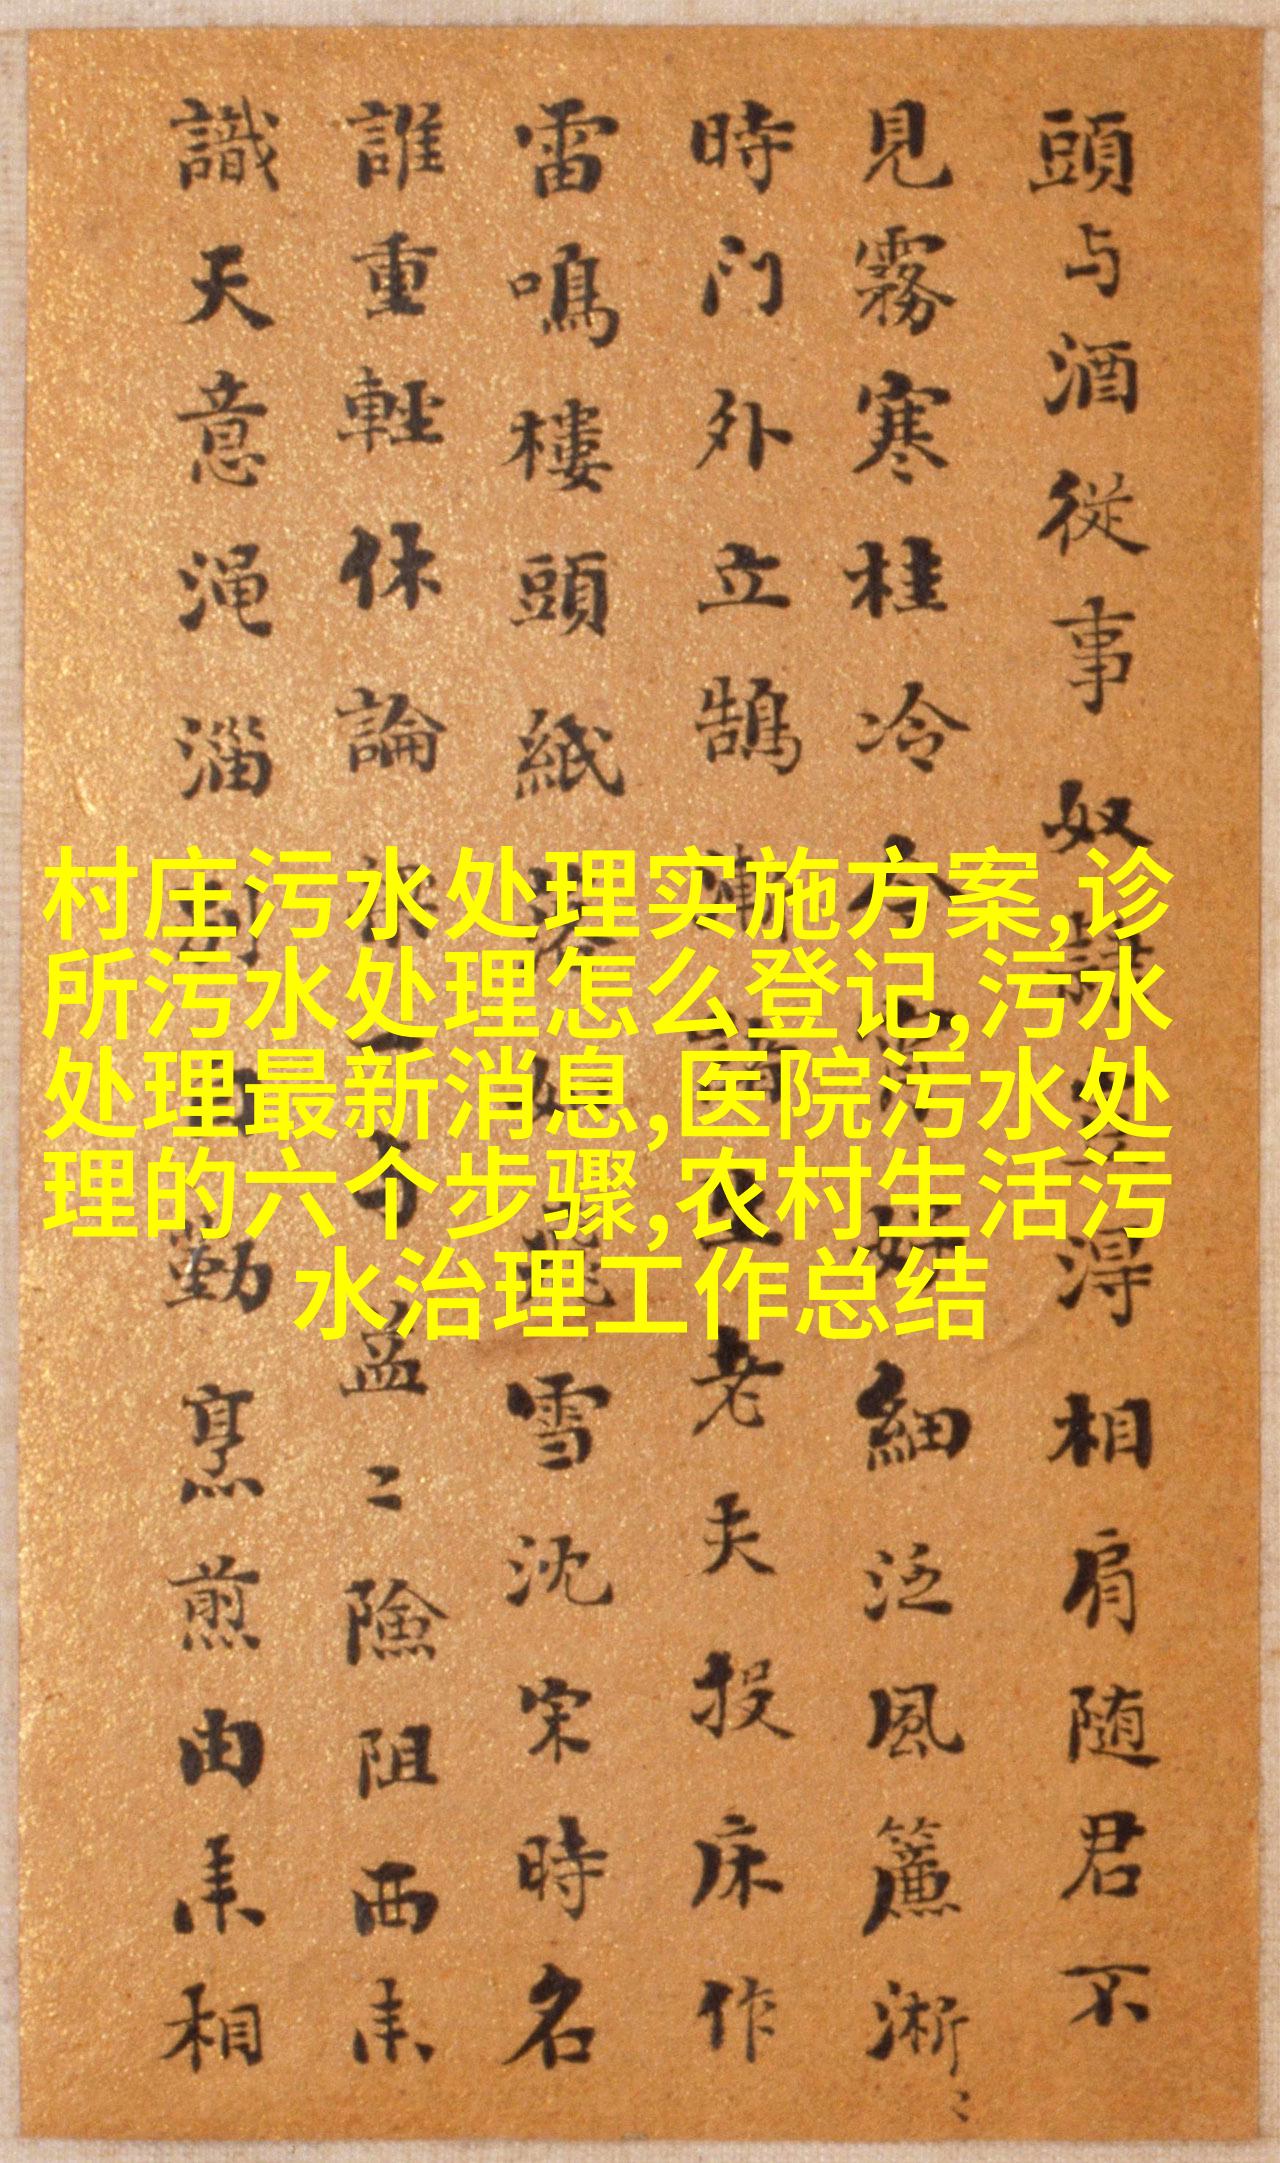 頭与酒從事奴隸淂相肩随君不
見霧寒桂冷今細泛風簾淅〻
時门外立鵠老夫投床作
雷鳴樓頭紙雪沈宋時名
誰重輕休論孟〻險阻西来
識天意渑淄别勤烹煎由来相
村庄污水处理实施方案,诊
所污水处理怎么登记,污水
处理最新消息,医院污水处
理的六个步骤,农村生活污
水治理工作总结